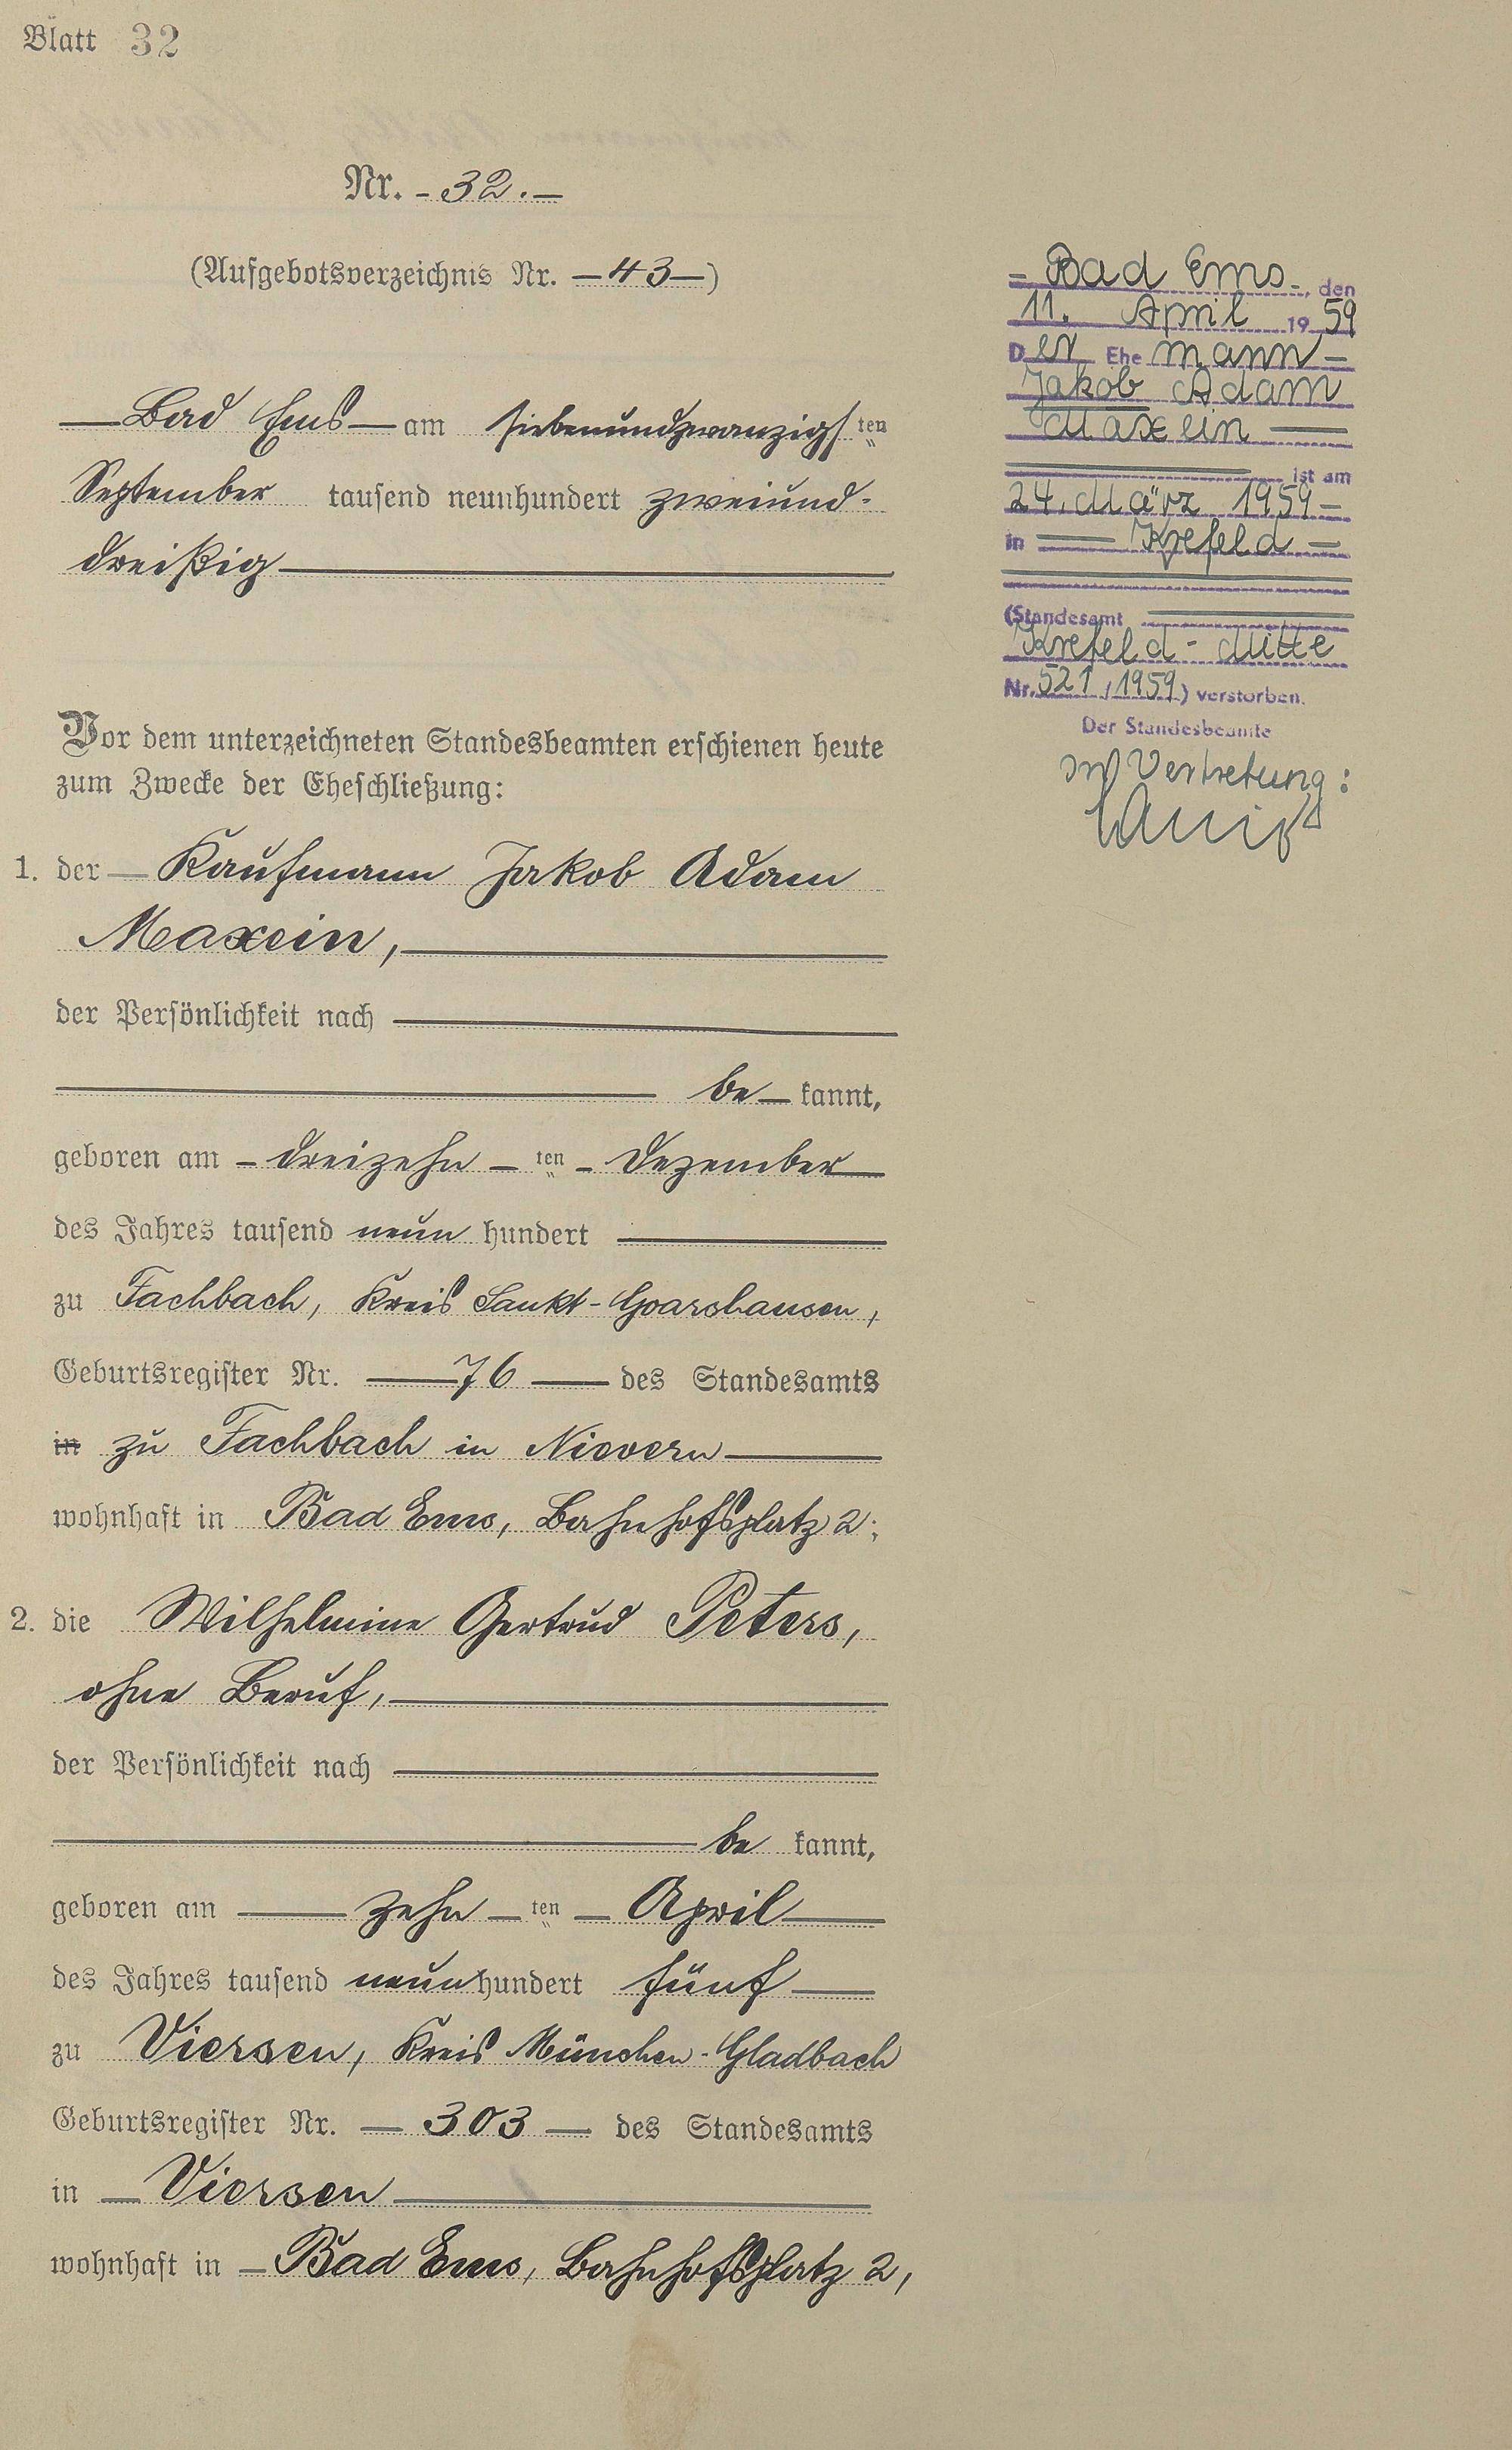 Blatt 32
Nr. - 32. -
(Aufgebotsverzeichnis Nr. - 43 -)
- Bad Ems - am siebenundzwanzigsten
September tausend neunhundert zweiund-
dreißig
Vor dem unterzeichneten Standesbeamten erschienen heute
zum Zwecke der Eheschließung:
1. der - Kaufmann Jakob Adam
Maxein,
der Persönlichkeit nach
be - kannt,
geboren am - dreizehn - ten - Dezember
des Jahres tausend neun hundert
zu Fachbach, Kreis Sankt-Goarshausen,
Geburtsregister Nr. - 76 - des Standesamts
in zu Fachbach in Nievern
wohnhaft in Bad Ems, Bahnhofsplatz 2;
2. die Wilhelmine Gertrud Peters,
ohne Beruf,
der Persönlichkeit nach
be kannt,
geboren am - zehn - ten - April
des Jahres tausend neunhundert fünf
zu Viersen, Kreis München-Gladbach
Geburtsregister Nr. - 303 - des Standesamts
in - Viersen
wohnhaft in - Bad Ems, Bahnhofsplatz 2,
- Bad Ems -, den
11. April 1959
Der Ehemann -
Jakob Adam
Maxein
ist am
24. März 1959 -
in - Krefeld -
(Standesamt
Krefeld - Mitte
Nr. 521/1959) verstorben.
Der Standesbeamte
In Vertretung: